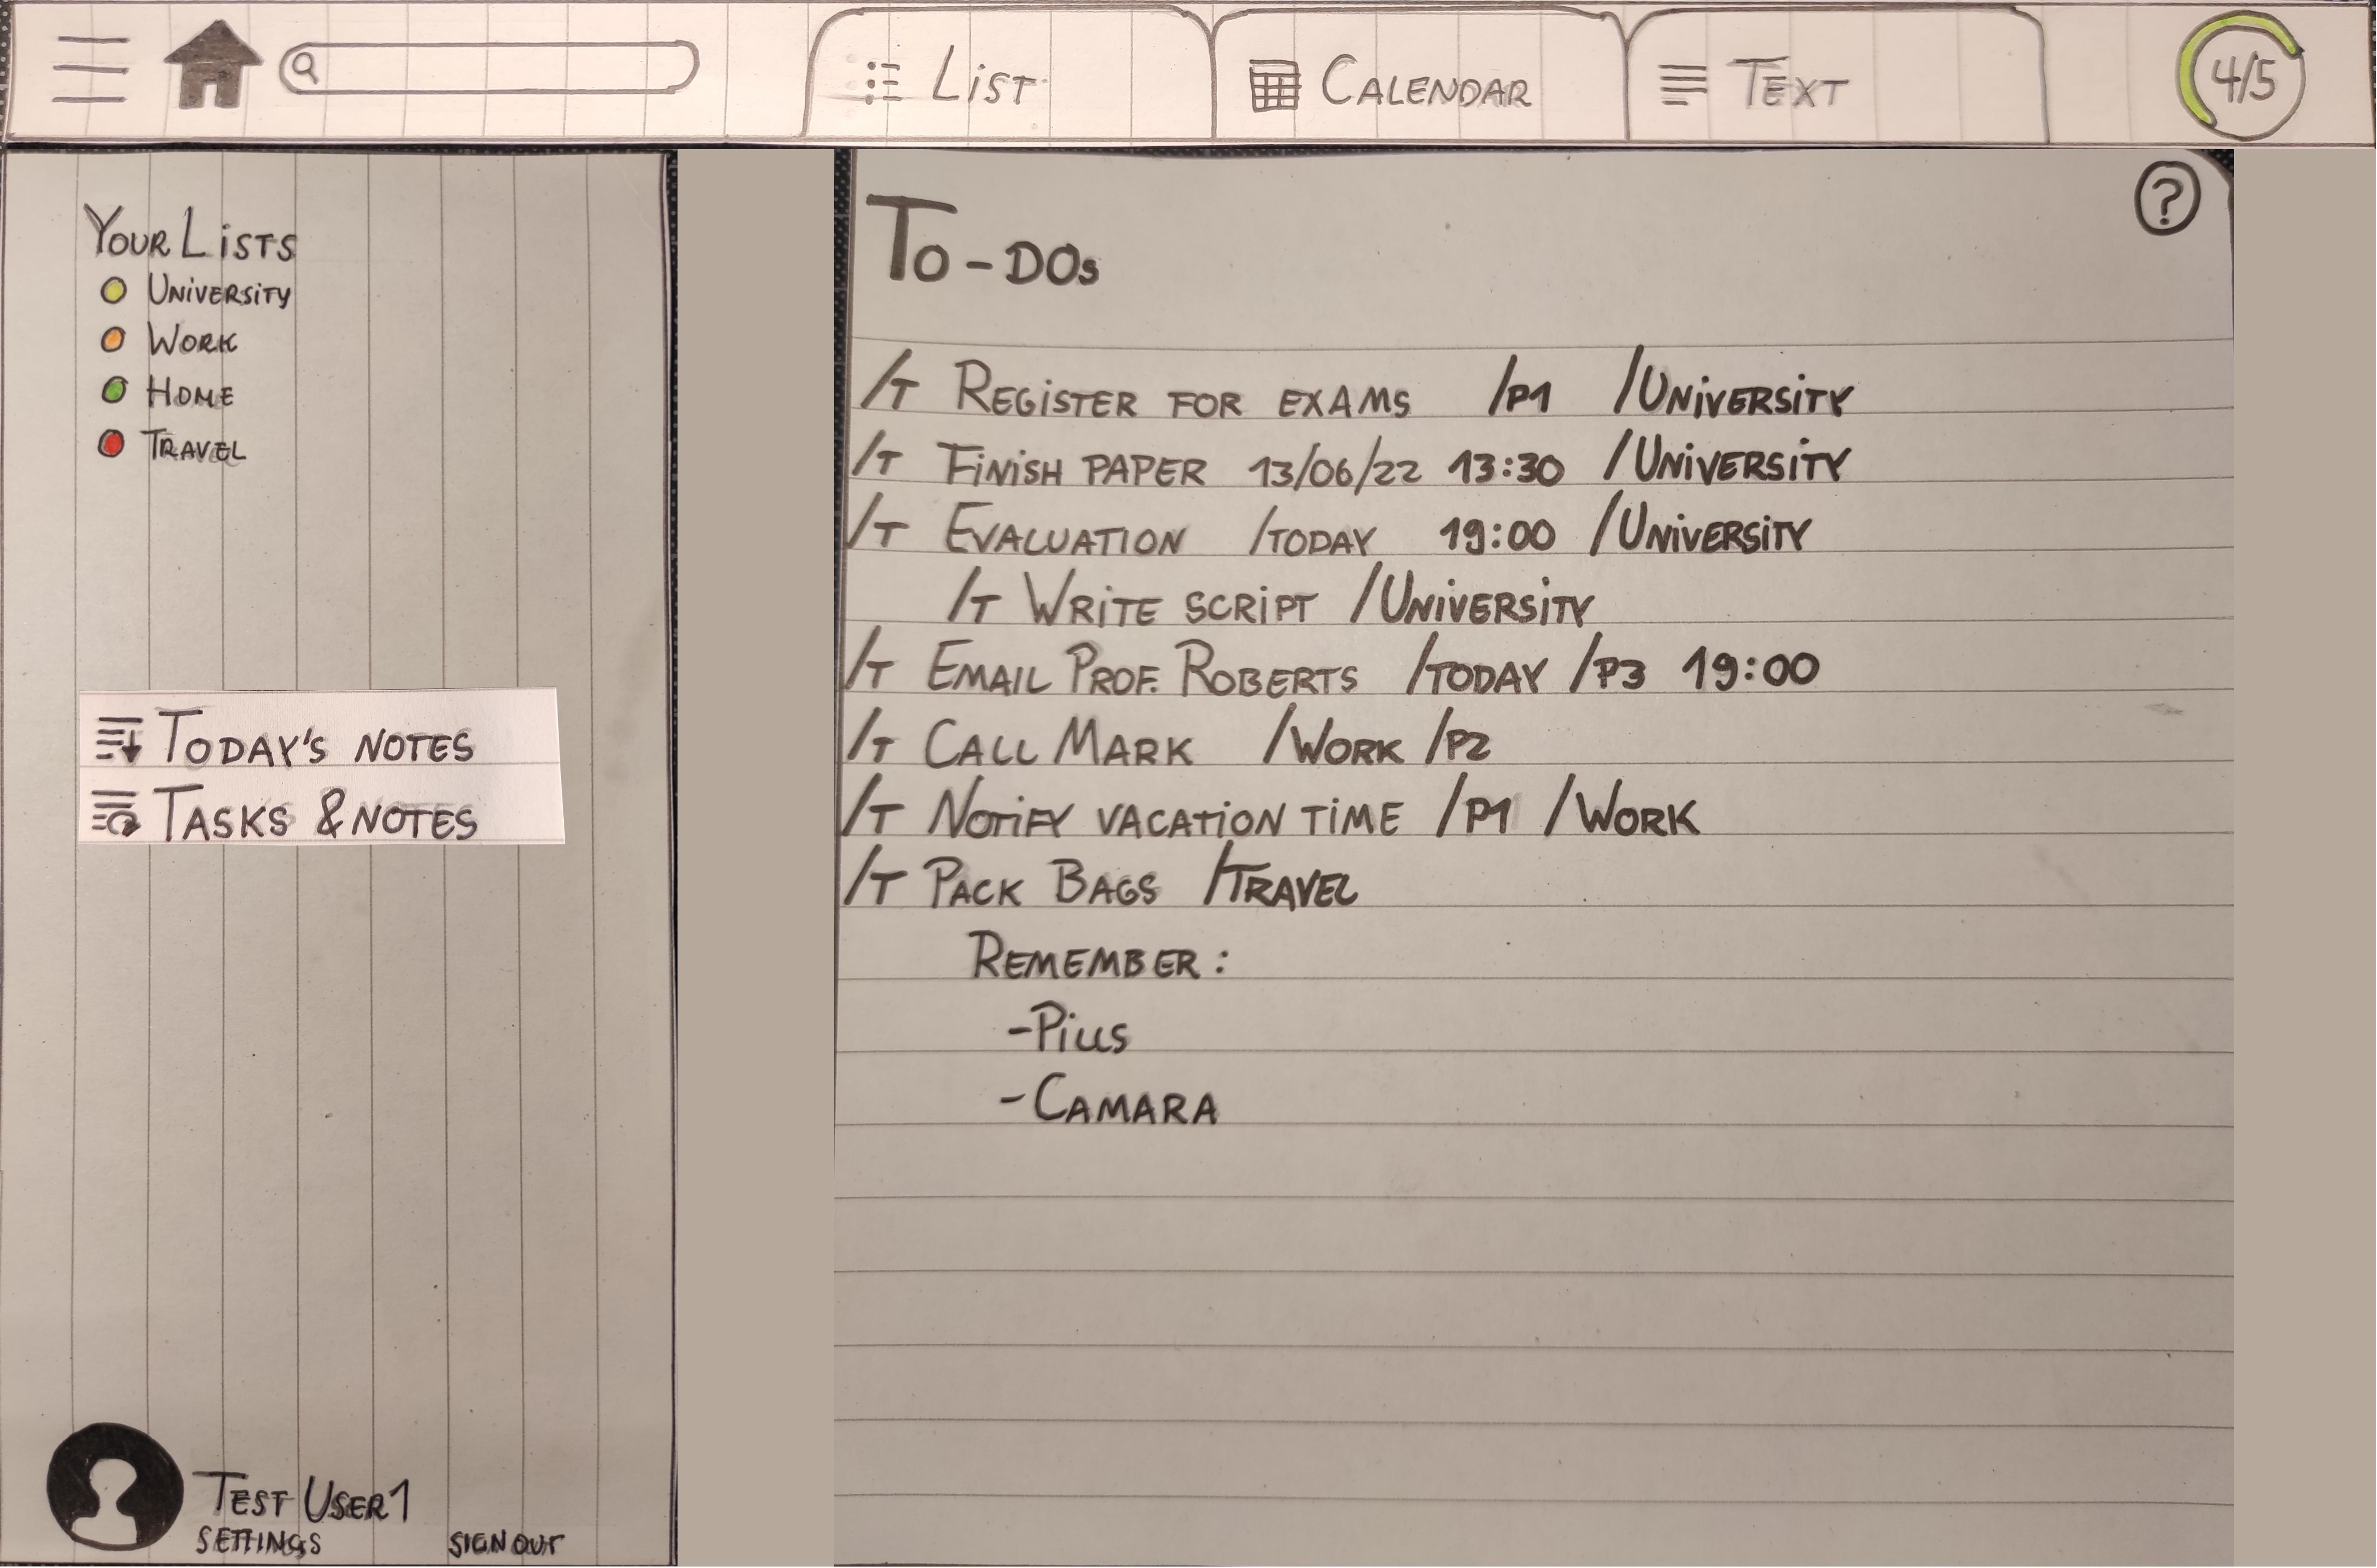 List
Calendar
Text
4/5
Your Lists
University
Work
Home
Travel
Today's notes
Tasks & notes
Test User1
Settings
Sign out
?
To-DOs
/T Register for exams /P1 /University
/T Finish paper 13/06/22 13:30 /University
/T Evaluation /today 19:00 /University
/T Write script /University
/T Email Prof. Roberts /today /P3 19:00
/T Call Mark /Work /P2
/T Notify vacation time /P1 /Work
/T Pack Bags /Travel
Remember:
-Pills
-Camara